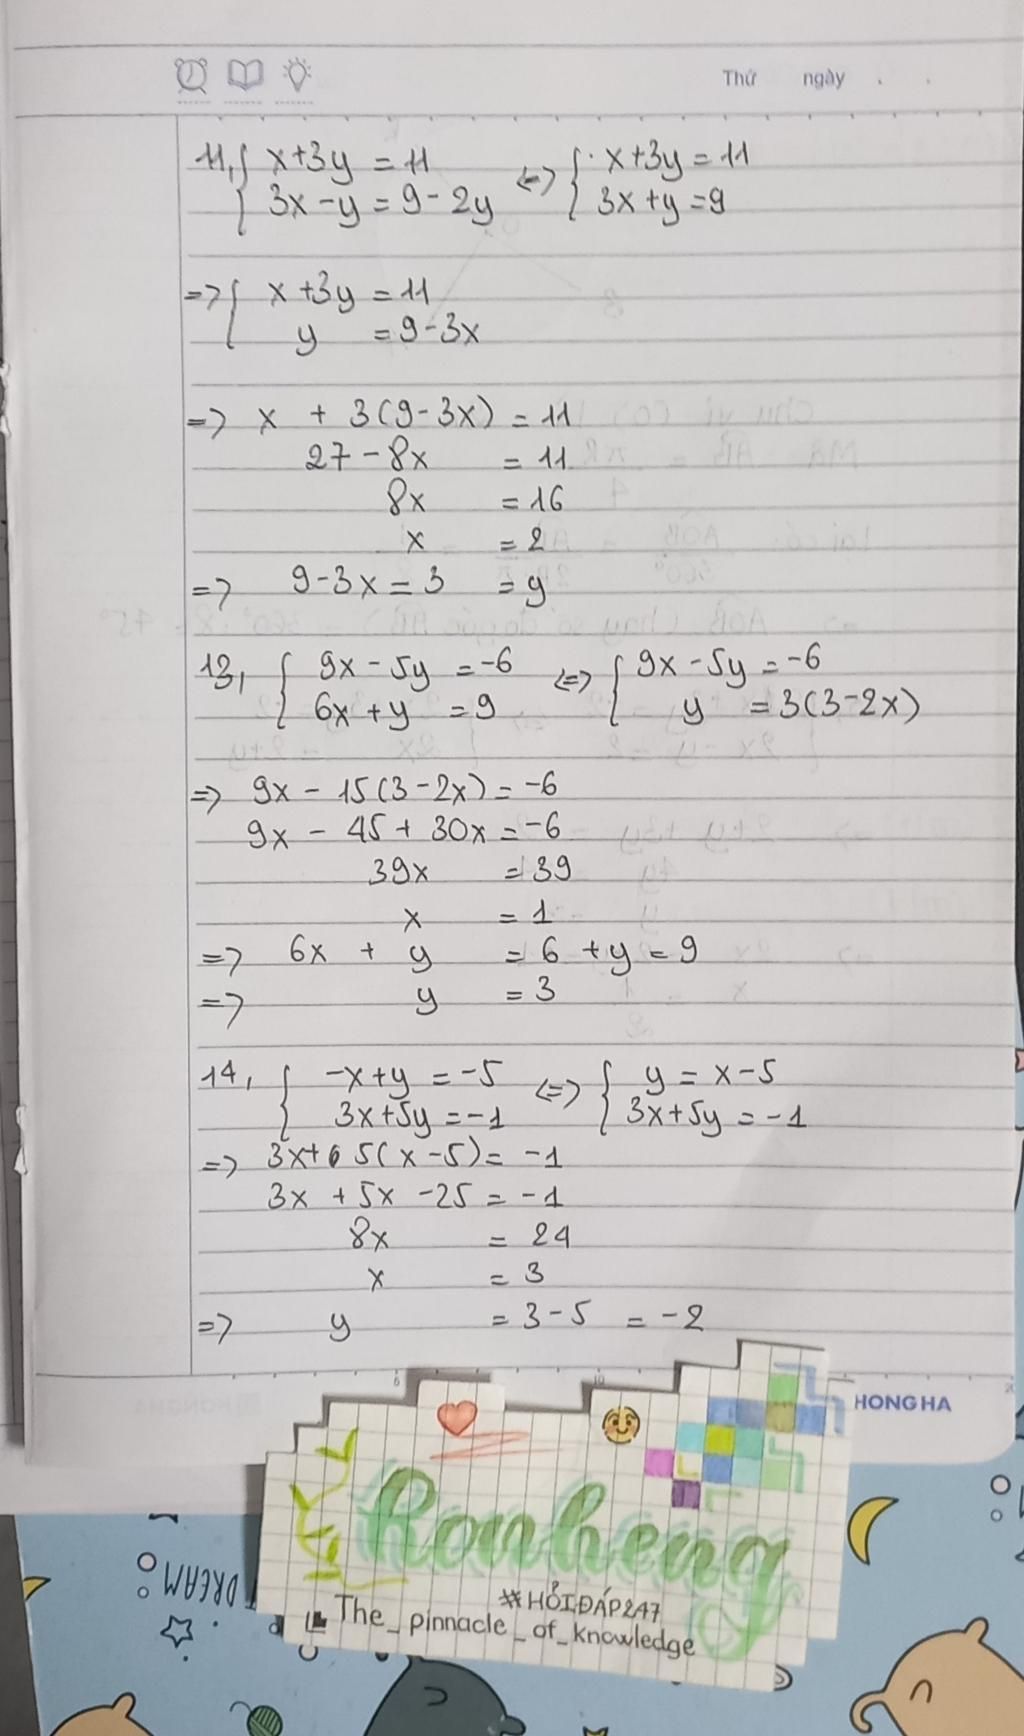 Thứ ngày . .
11, { x+3y = 11 <=> { x+3y = 11
3x-y = 9-2y 3x+y = 9
=> { x+3y = 11
y = 9-3x
=> x + 3(9-3x) = 11
27-8x = 11
8x = 16
x = 2
=> 9-3x = 3 = y
13, { 9x-5y = -6 <=> { 9x-5y = -6
6x+y = 9 y = 3(3-2x)
=> 9x - 15(3-2x) = -6
9x - 45 + 30x = -6
39x = 39
x = 1
=> 6x + y = 6 + y = 9
=> y = 3
14, { -x+y = -5 <=> { y = x-5
3x+5y = -1 3x+5y = -1
=> 3x+ 5(x-5) = -1
3x + 5x - 25 = -1
8x = 24
x = 3
=> y = 3-5 = -2
HONG HA
Ronheng
#HỎIĐÁP247
The_pinnacle_of_knowledge
DREAM